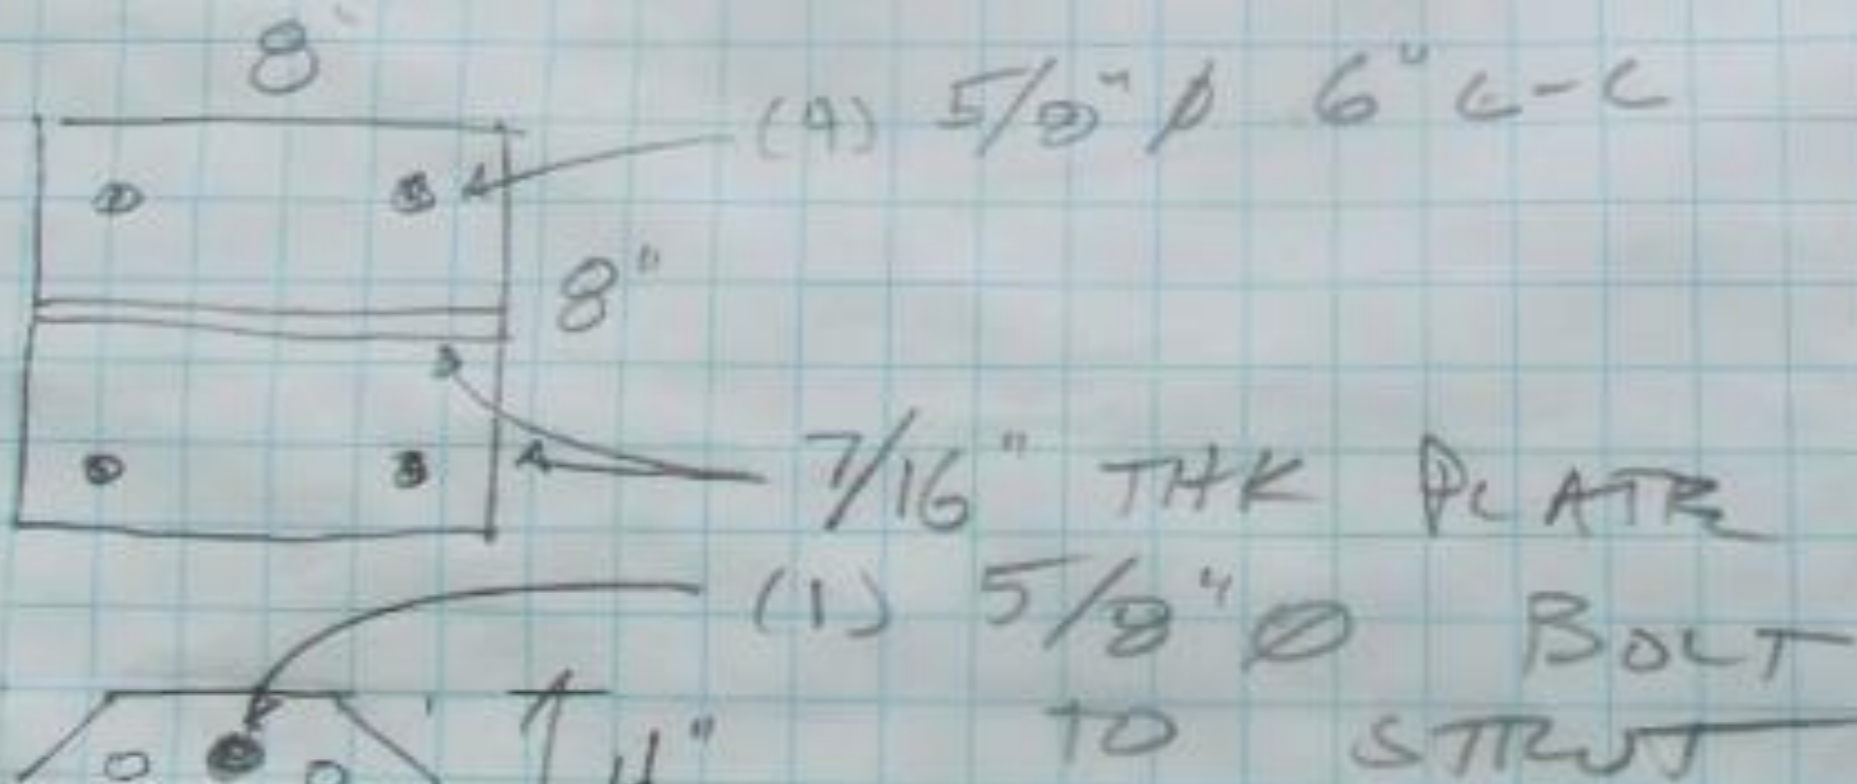 8"
(4) 5/8" Ø 6" C-C
8"
7/16" THK PLATE
(1) 5/8" Ø BOLT
TO STRUT
4"